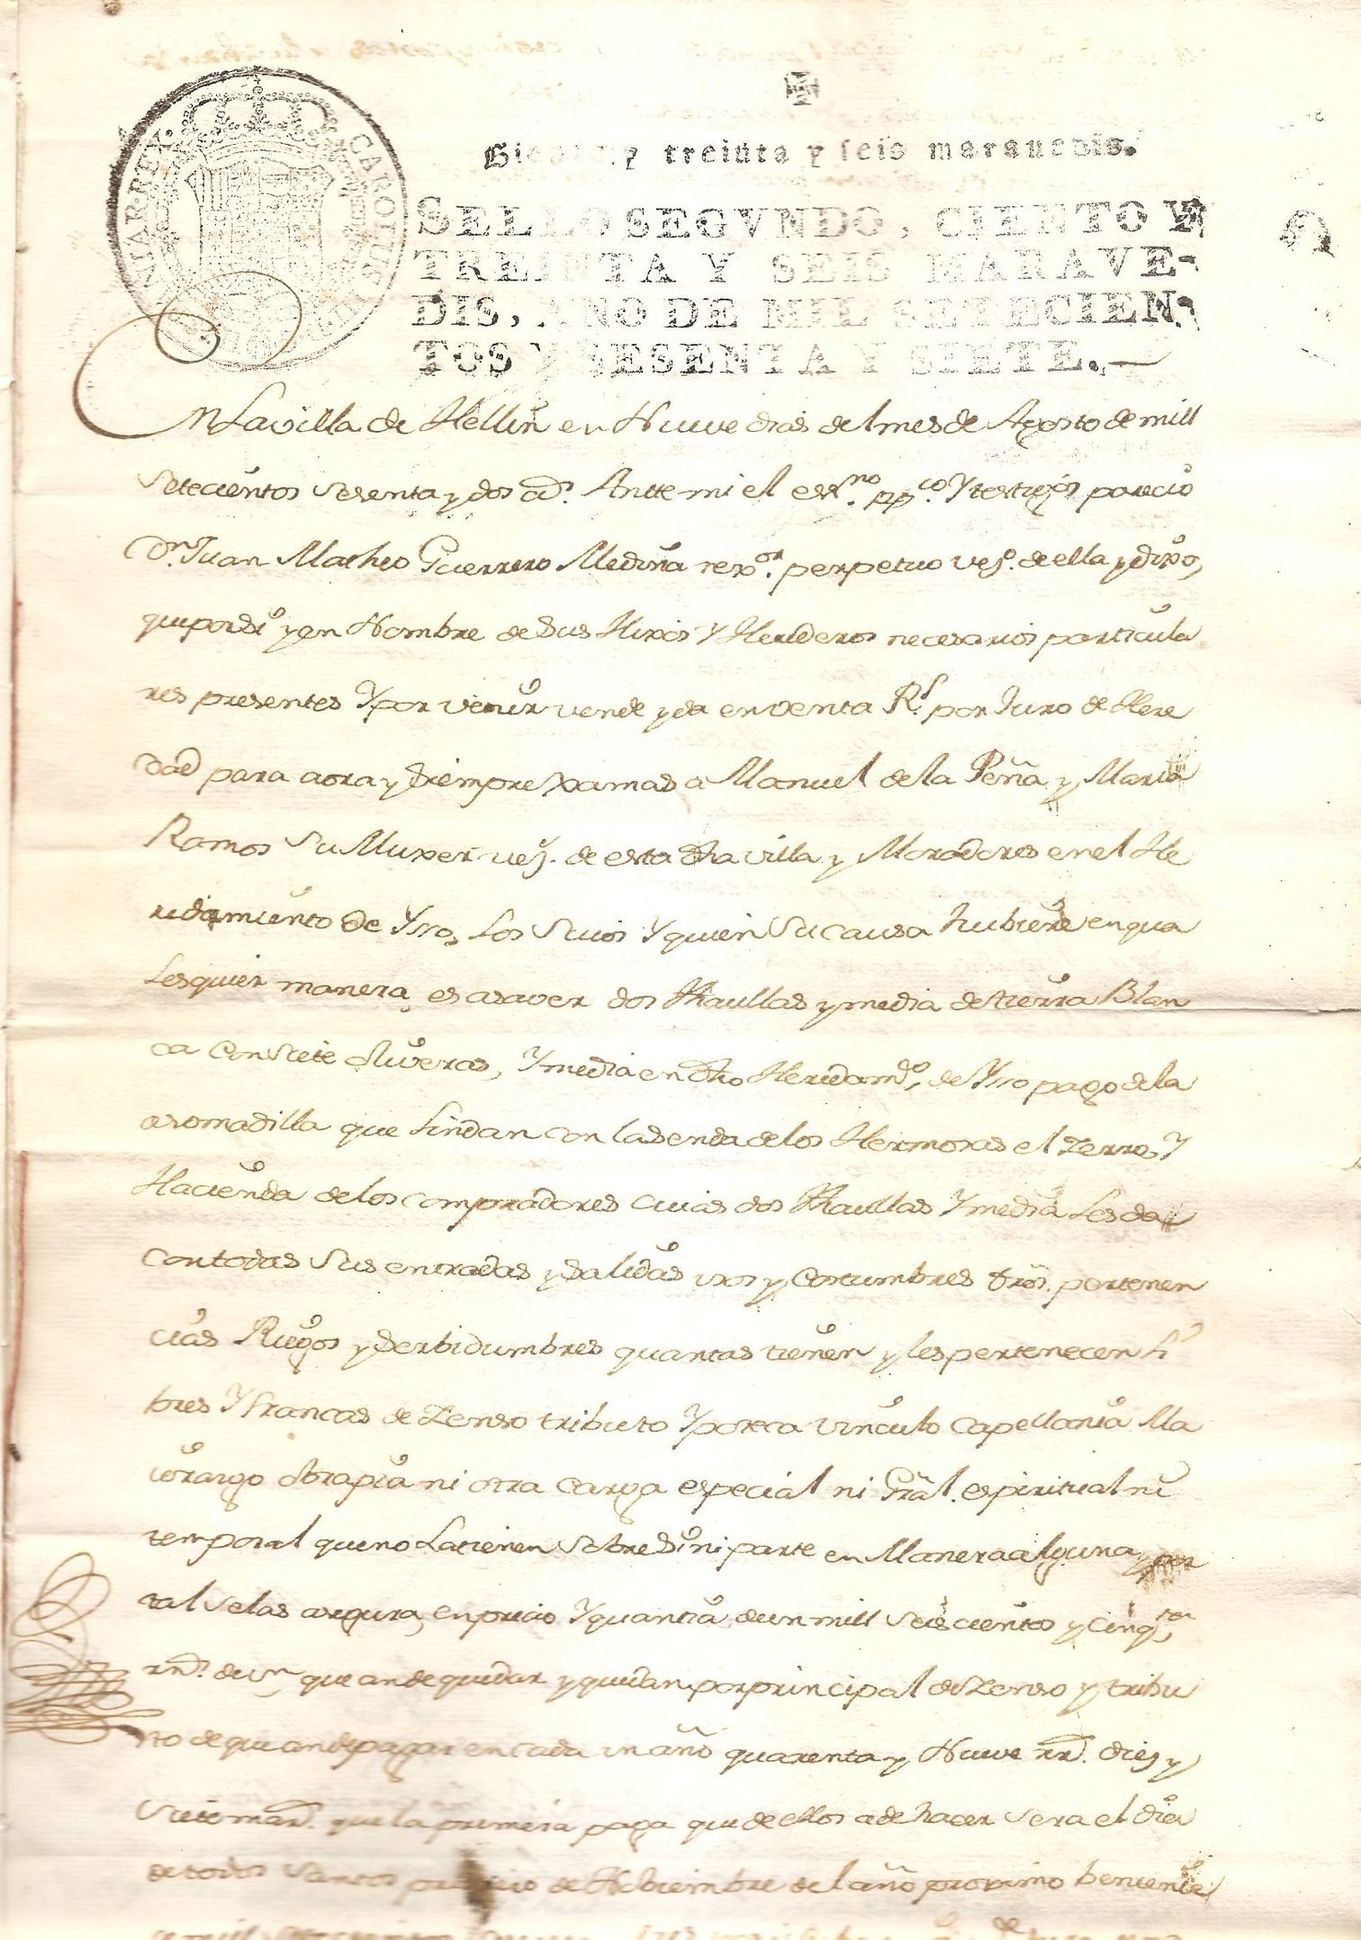 CAROLUS III D G HISPANIAR REX.
Ciento y treinta y seis marauedis.
SELLO SEGVNDO, CIENTO Y
TREINTA Y SEIS MARAVE-
DIS, AÑO DE MIL SETECIEN
TOS Y SESENTA Y SIETE.
En la villa de Hellin en Nueve dias del mes de Agosto de mill
Setecientos Sesenta y dos as. Antte mi el essno ppco. Y testigos parecio
Dn. Juan Matheo Guerrero Medina rexor. perpetuo vezo. de ella y dixo,
que por si y en Nombre de sus Hixos Y Herederos necesarios particula
res presentes Y por venir vende y da en venta Rl. por Juro de Here
dad para aora y Siempre xamas a Manuel de la Peña y Maria
Ramos Su Muxer vez. de esta dha villa y Moradores en el He
redamiento de Ysso, Los Suios Y quien Su causa hubiere en qua
lesquier manera es asaver dos Thaullas y media de tierra Blan
ca con Siete oliveras, Y media en dho Heredamto. de Ysso pago de la
asomadilla que Lindan con la Senda de los Hermosas el Zerro Y
Hacienda de los compradores cuias dos Thaullas Y media Les da
con todas Sus entradas y Salidas usos y costumbres dros. pertenen
cias Riegos y Serbidumbres quantas tienen y les pertenecen Li
bres Y francas de Zenso tributo Ypoteca vinculo capellania Ma
iorazgo obrapia ni otra carga especial ni Gral. espiritual ni
temporal que no La tienen Sobre Si ni parte en Manera alguna y por
tal Se las asegura, en precio Y quantia de un mill Seis cientos y Cinqta.
rrs. de vn que an de quedar y quedan por principal de Zenso y tribu
to de que an de pagar en cada un año quarenta y Nueve rrs. diez y
Siete mars. que la primera paga que de ellos a de hacer Sera el dia
de todos Santos primero de Nobiembre del año proximo beniente